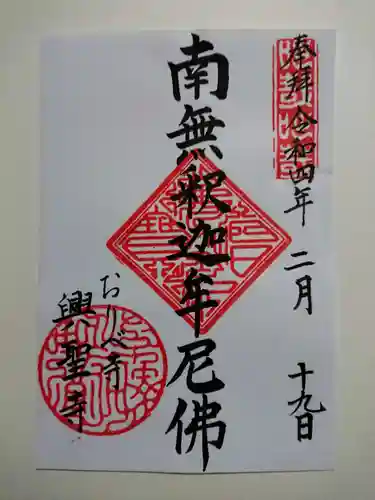 奉拝 令和四年 二月 十九日
南無釈迦牟尼佛
おりべ寺
興聖寺